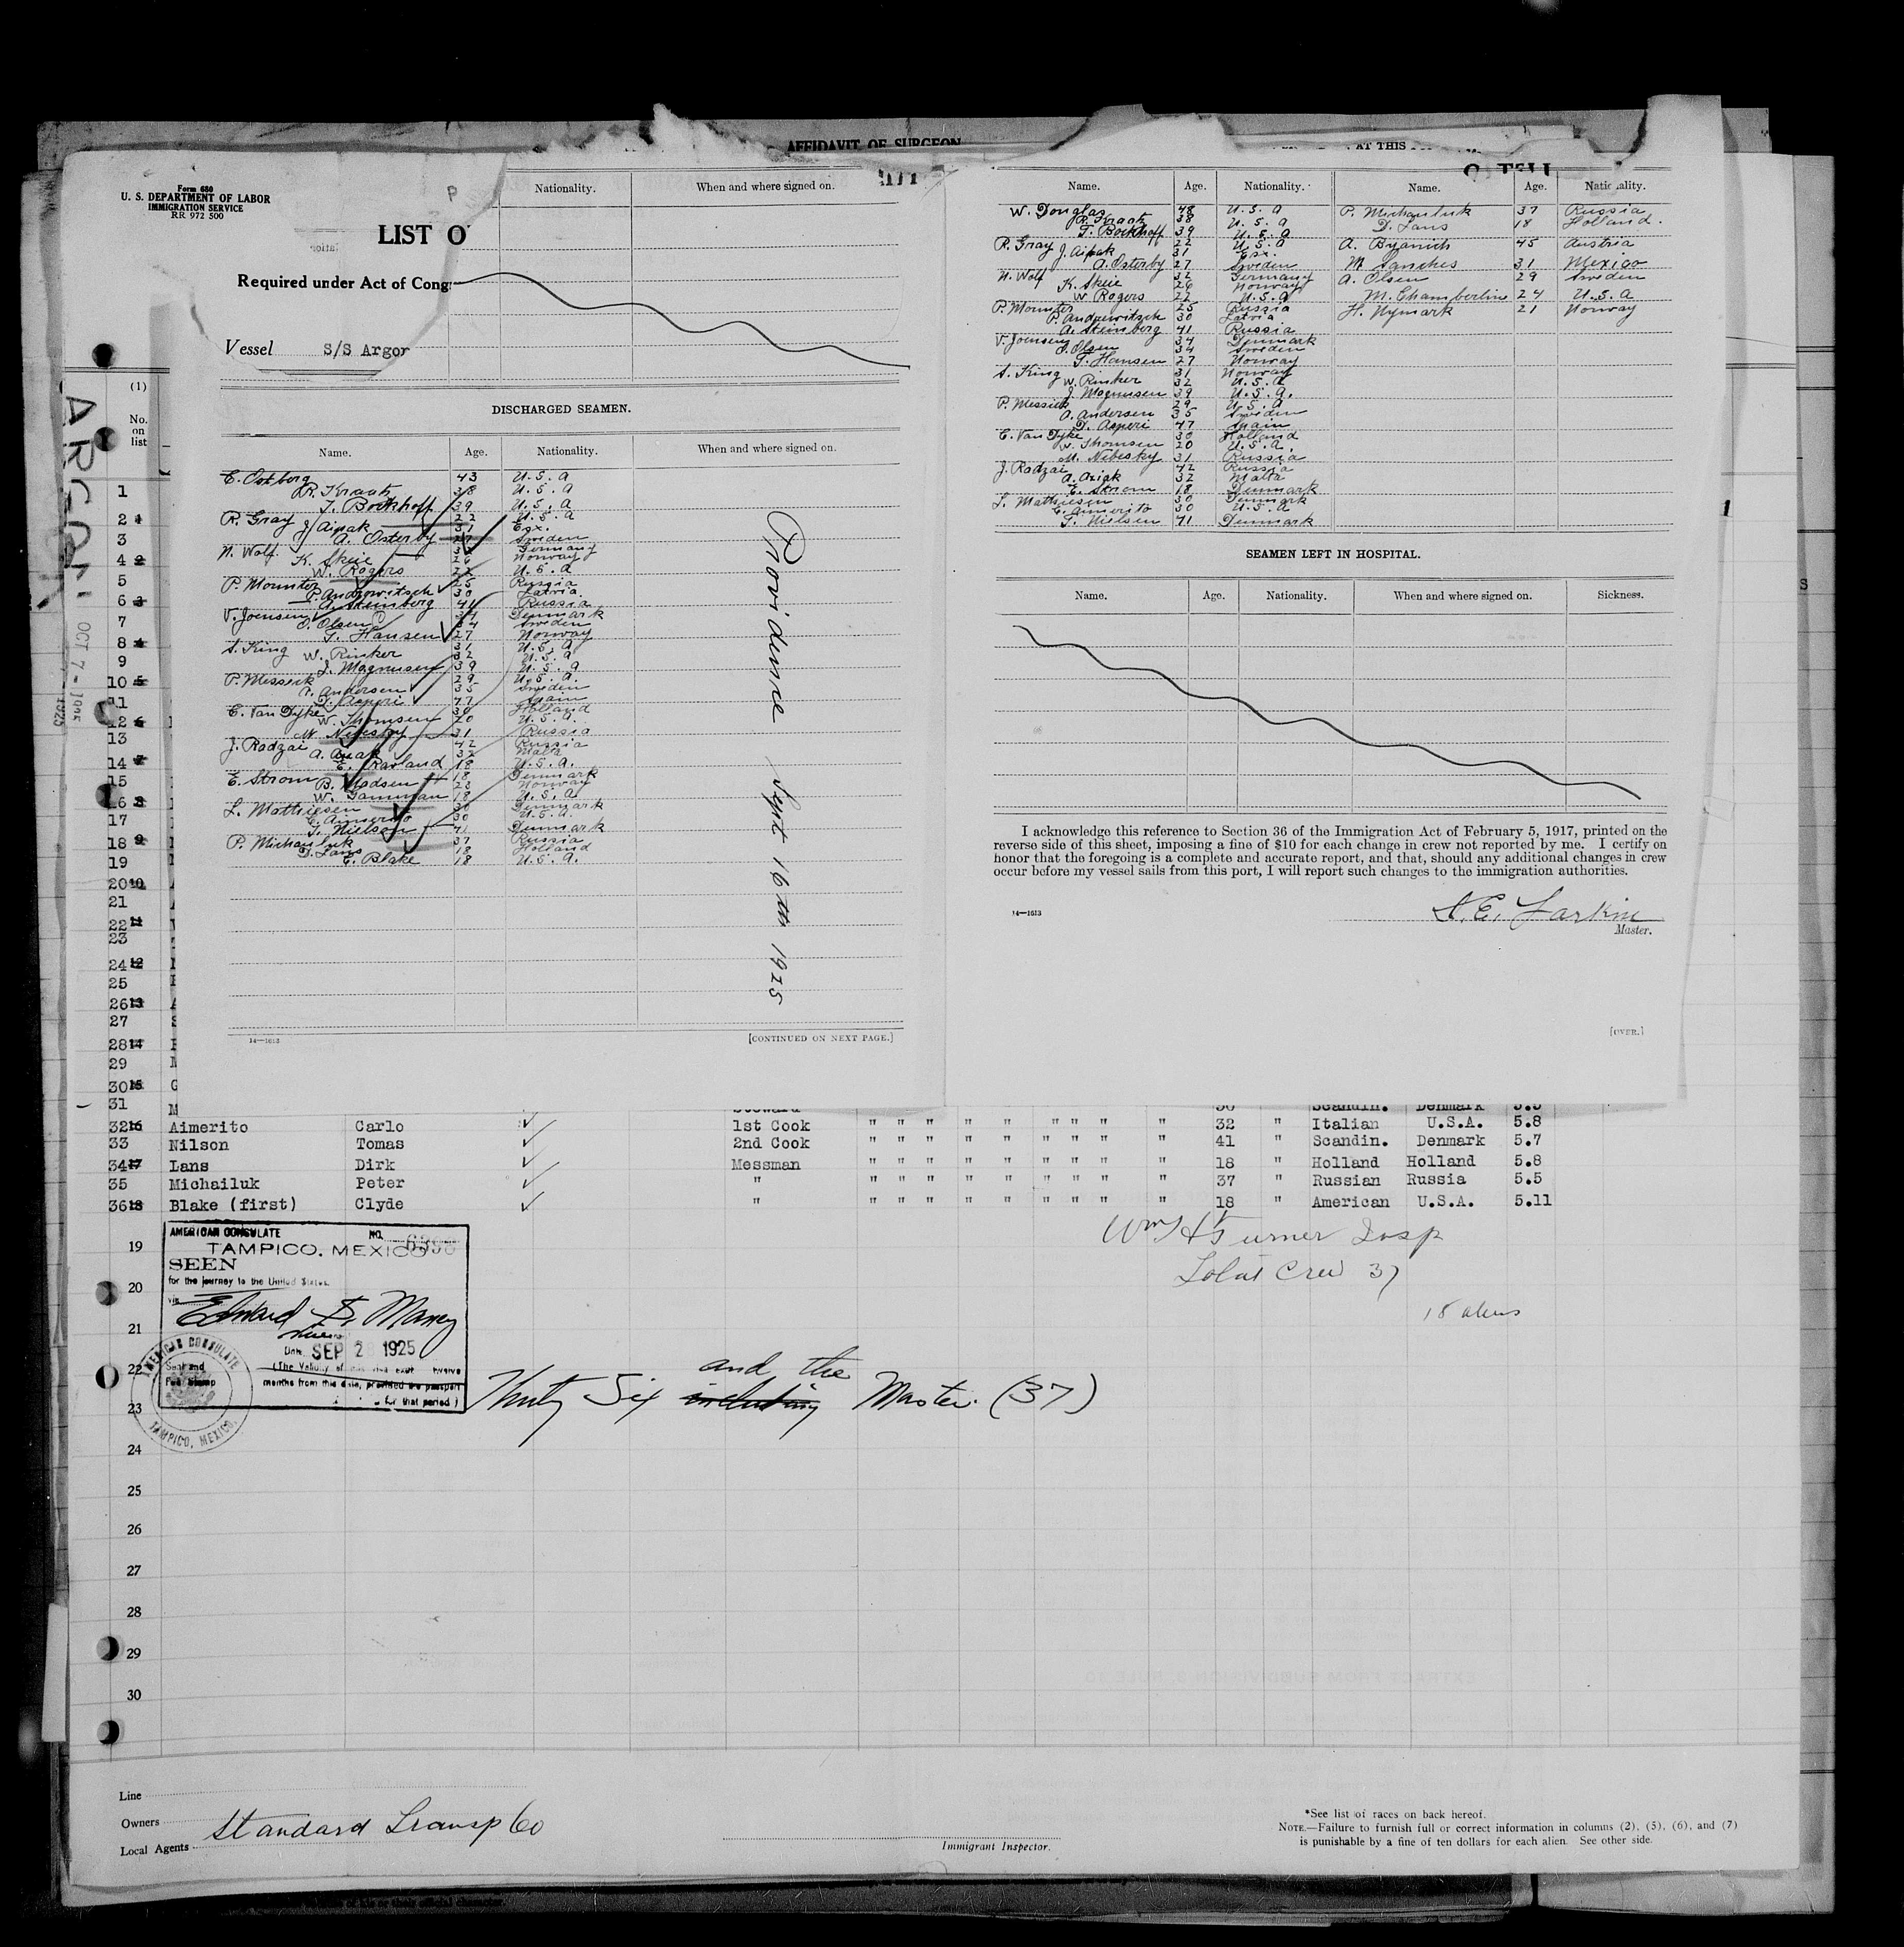 AFFIDAVIT OF SURGEON
AT THIS
Form 680
U. S. DEPARTMENT OF LABOR
IMMIGRATION SERVICE
RR 972 500
LIST O
Required under Act of Cong
Vessel S/S Argon
P
Nationality. When and where signed on.
DISCHARGED SEAMEN.
Name. Age. Nationality. When and where signed on.
C. Ostberg 43 U.S.A
R. Kraatz 38 U.S.A
T. Bockhoff 39 U.S.A
R. Gray 22 U.S.A
J. Aipak 31 Esx.
A. Osterby 27 Sweden
N. Wolf 32 Germany
K. Skeie 26 Norway
W. Rogers 22 U.S.A
P. Mounter 25 Russia
P. Andrewitsch 30 Latvia.
A. Steinberg 41 Russia
V. Joensen 34 Denmark
O. Olsen 34 Sweden
T. Hansen 27 Norway
S. King 31 U.S.A
W. Rinker 32 U.S.A
J. Magnusen 39 U.S.A
P. Messick 29 U.S.A.
A. Andersen 35 Sweden
D. Asperi 47 Spain
C. Van Dyke 30 Holland
W. Thomsen 20 U.S.A.
M. Nebesky 31 Russia
J. Radzai 42 Russia
A. Aziak 32 Malta
E. Rowland 18 U.S.A.
E. Strom 18 Denmark
B. Madsen 23 Norway
W. Gamman 18 U.S.A.
L. Mathiesen 30 Denmark
C. Aimerito 30 U.S.A.
T. Nielson 41 Denmark
P. Michauluk 37 Russia
D. Lans 18 Holland
C. Blake 18 U.S.A.
Providence Sept 16th 1925
14—1613 [CONTINUED ON NEXT PAGE.]
Name. Age. Nationality. Name. Age. Nationality.
W. Douglas 48 U.S.A P. Michauluk 37 Russia
R. Kraatz 38 U.S.A D. Lans 18 Holland.
T. Bockhoff 39 U.S.A
R. Gray 22 U.S.A A. Byanich 45 Austria
J. Aipak 31 Esx.
A. Osterby 27 Sweden M. Sanches 31 Mexico
N. Wolf 32 Germany A. Olsen 29 Sweden
K. Skeie 26 Norway
W Rogers 22 U.S.A M. Chamberline 24 U.S.A
P. Mounter 25 Russia H. Nymark 21 Norway
P. Andrewitsch 30 Latvia
A. Steinberg 41 Russia
V. Joensen 34 Denmark
O. Olsen 34 Sweden
T. Hansen 27 Norway
S. King 31 Norway
W. Rinker 32 U.S.A
J. Magnusen 39 U.S.A.
P. Messick 29 U.S.A
A. Andersen 35 Sweden
D. Asperi 47 Spain
C. Van Dyke 30 Holland
W. Thomsen 20 U.S.A.
M. Nebesky 31 Russia
J. Radzai 42 Russia
A. Aziak 32 Malta
E. Strom 18 Denmark
L. Mathiesen 30 Denmark
C. Aimerito 30 U.S.A
T. Nielsen 41 Denmark
SEAMEN LEFT IN HOSPITAL.
Name. Age. Nationality. When and where signed on. Sickness.
I acknowledge this reference to Section 36 of the Immigration Act of February 5, 1917, printed on the
reverse side of this sheet, imposing a fine of $10 for each change in crew not reported by me. I certify on
honor that the foregoing is a complete and accurate report, and that, should any additional changes in crew
occur before my vessel sails from this port, I will report such changes to the immigration authorities.
14—1613 A.E. Larkin
Master.
[OVER.]
ARGON
OCT 7 - 1925
1925
(1)
No.
on
list
1
2
3
4
5
6
7
8
9
10
11
12
13
14
15
16
17
18
19
20
21
22
23
24
25
26
27
28
29
30
31 Steward 30 Scandin. Denmark 5.5
32 Aimerito Carlo 1st Cook " " " " " " " " " 32 " Italian U.S.A. 5.8
33 Nilson Tomas 2nd Cook " " " " " " " " " 41 " Scandin. Denmark 5.7
34 Lans Dirk Messman " " " " " " " " " 18 " Holland Holland 5.8
35 Michailuk Peter " " " " " " " " " " 37 " Russian Russia 5.5
36 Blake (first) Clyde " " " " " " " " " " 18 " American U.S.A. 5.11
Wm H Turner Insp
Total Crew 37
18 aliens
AMERICAN CONSULATE NO. 6398
TAMPICO, MEXICO
SEEN
for the journey to the United States.
via
Date SEP 2 1925
months from this date, provided the passport
for that period)
AMERICAN CONSULATE
TAMPICO, MEXICO.
and the
Thirty Six including Master. (37)
19
20
21
22
23
24
25
26
27
28
29
30
Line
Owners Standard Transp Co
Local Agents
Immigrant Inspector.
*See list of races on back hereof.
NOTE.—Failure to furnish full or correct information in columns (2), (5), (6), and (7)
is punishable by a fine of ten dollars for each alien. See other side.